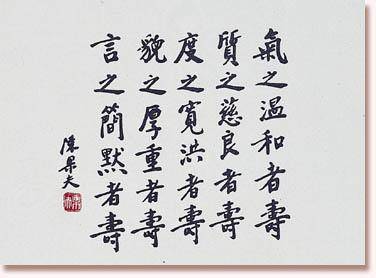 氣之溫和者壽
質之慈良者壽
度之寬洪者壽
貌之厚重者壽
言之簡默者壽
陳果夫